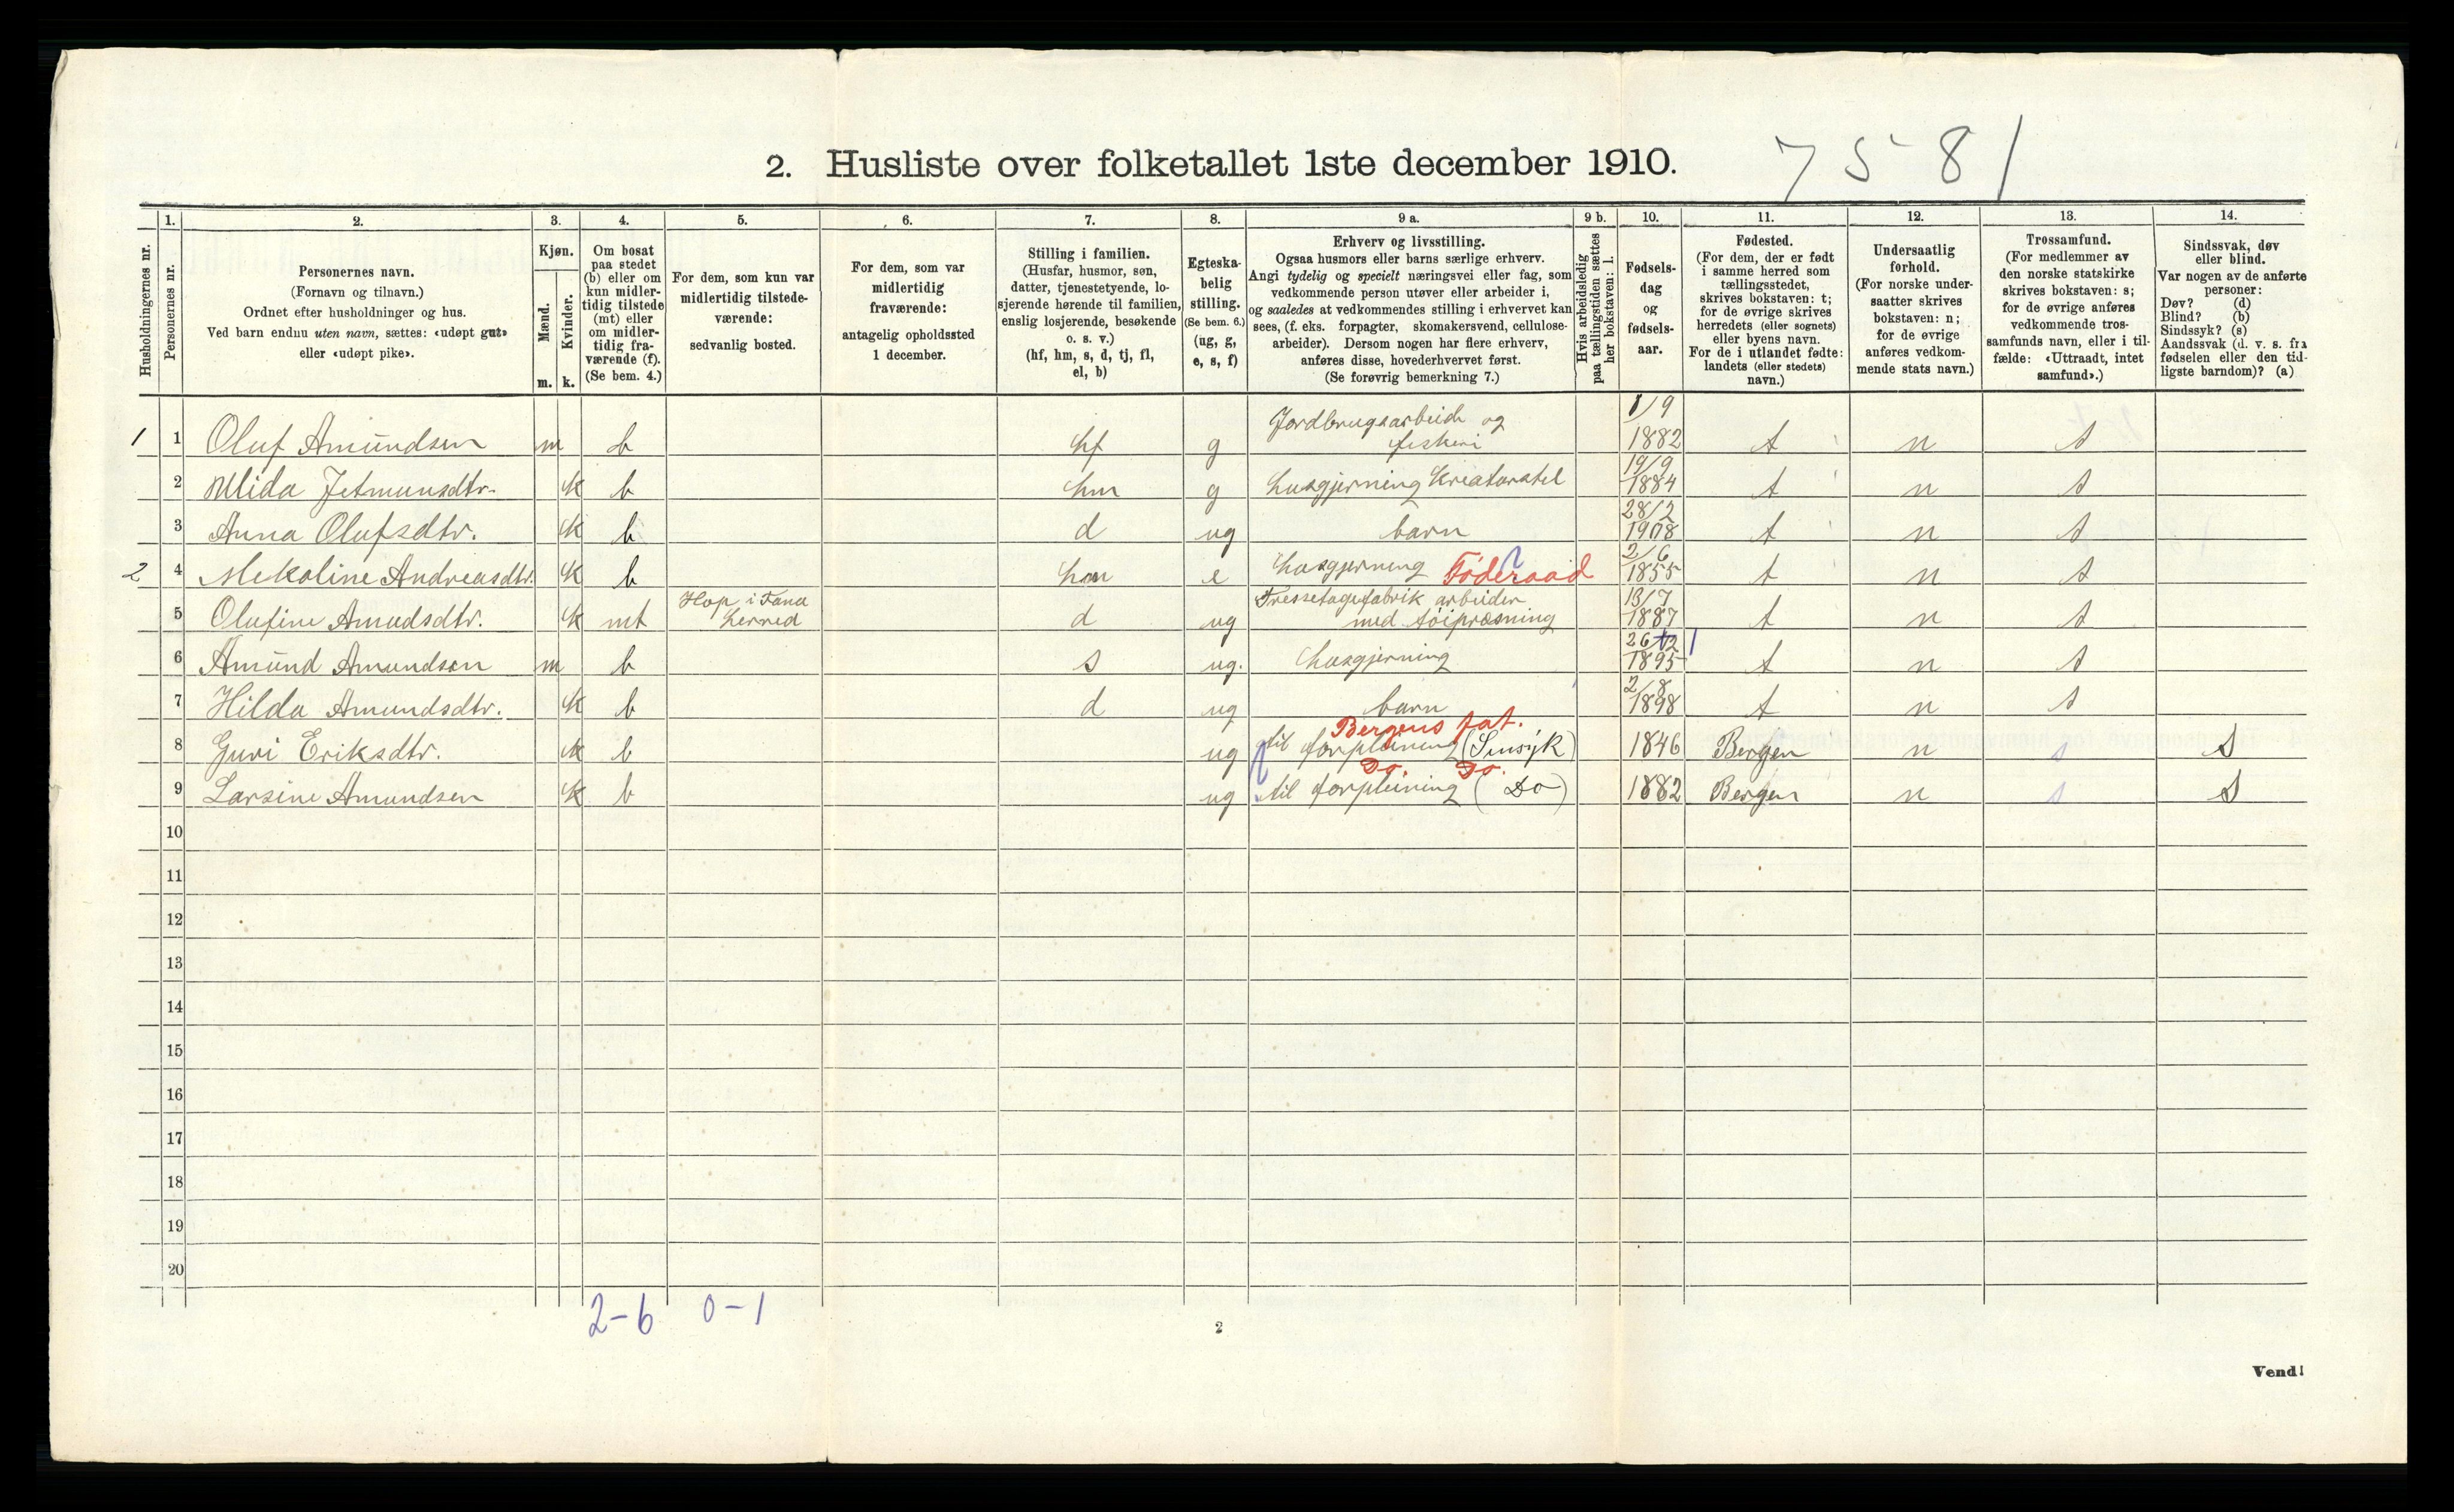 2. Husliste over folketallet 1ste december 1910.
7581
Husholdningernes nr.
1.
Personernes nr.
2.
Personernes navn.
(Fornavn og tilnavn.)
Ordnet efter husholdninger og hus.
Ved barn endnu uten navn, sættes: «udøpt gut»
eller «udøpt pike».
3.
Kjøn.
Mænd.
m.
Kvinder.
k.
4.
Om bosat
paa stedet
(b) eller om
kun midler-
tidig tilstede
(mt) eller
om midler-
tidig fra-
værende (f).
(Se bem. 4.)
5.
For dem, som kun var
midlertidig tilstede-
værende:
sedvanlig bosted.
6.
For dem, som var
midlertidig
fraværende:
antagelig opholdssted
1 december.
7.
Stilling i familien.
(Husfar, husmor, søn,
datter, tjenestetyende, lo-
sjerende hørende til familien,
enslig losjerende, besøkende
o. s. v.)
(hf, hm, s, d, tj, fl,
el, b)
8.
Egteska-
belig
stilling.
(Se bem. 6.)
(ug, g,
e, s, f)
9 a.
Erhverv og livsstilling.
Ogsaa husmors eller barns særlige erhverv.
Angi tydelig og specielt næringsvei eller fag, som
vedkommende person utøver eller arbeider i,
og saaledes at vedkommendes stilling i erhvervet kan
sees, (f. eks. forpagter, skomakersvend, cellulose-
arbeider). Dersom nogen har flere erhverv,
anføres disse, hovederhvervet først.
(Se forøvrig bemerkning 7.)
9 b.
Hvis arbeidsledig
paa tællingstiden sættes
her bokstaven: l.
10.
Fødsels-
dag
og
fødsels-
aar.
11.
Fødested.
(For dem, der er født
i samme herred som
tællingsstedet,
skrives bokstaven: t;
for de øvrige skrives
herredets (eller sognets)
eller byens navn.
For de i utlandet fødte:
landets (eller stedets)
navn.)
12.
Undersaatlig
forhold.
(For norske under-
saatter skrives
bokstaven: n;
for de øvrige
anføres vedkom-
mende stats navn.)
13.
Trossamfund.
(For medlemmer av
den norske statskirke
skrives bokstaven: s;
for de øvrige anføres
vedkommende tros-
samfunds navn, eller i til-
fælde: «Uttraadt, intet
samfund».)
14.
Sindssvak, døv
eller blind.
Var nogen av de anførte
personer:
Døv? (d)
Blind? (b)
Sindssyk? (s)
Aandssvak (d. v. s. fra
fødselen eller den tid-
ligste barndom)? (a)
1 1 Oluf Amundsen m b hf g Jordbrugsarbeide og fiskeri 1/9 1882 t n s
2 Mida Jetmunsdtr. k b hm g husgjerning kreaturstel 19/9 1884 t n s
3 Anna Olufsdtr. k b d ug barn 28/2 1908 t n s
2 4 Mekoline Andreasdtr. k b hm e husgjerning Föderaad 2/6 1855 t n s
5 Olufine Amudsdtr. k mt Hop i Fana herred d ug Tressetøgsfabrik arbeider med tøipræsning 13/7 1887 t n s
6 Amund Amundsen m b s ug. husgjerning 26/12 1 1895 t n s
7 Hilda Amundsdtr. k b d ug barn 2/8 1898 t n s
8 Guri Eriksdtr. k b ug Bergens fat. til forpleining (Sinsyk) 1846 Bergen n s S
9 Larsine Amundsen k b ug Do. Do. til forpleining (Do) 1882 Bergen n s S
10
11
12
13
14
15
16
17
18
19
20
2-6 0-1
2
Vend!